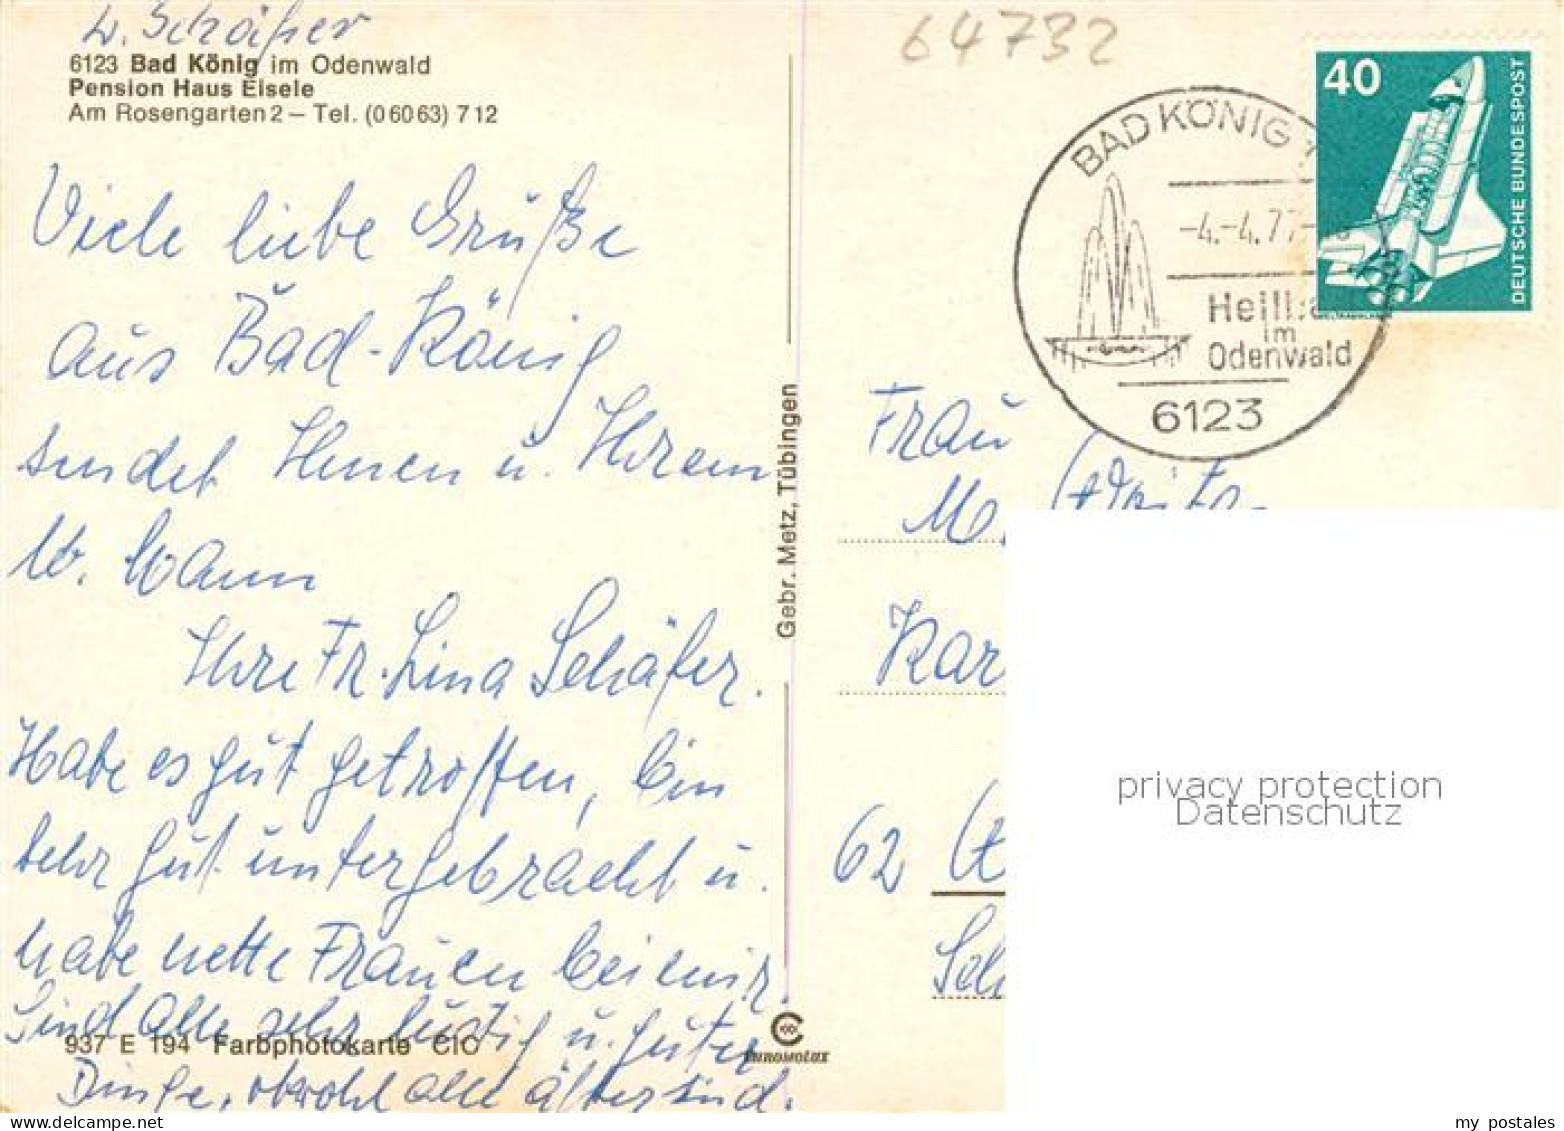 L. Schäfer
6123 Bad König im Odenwald
Pension Haus Eisele
Am Rosengarten 2 – Tel. (0 60 63) 7 12
Viele liebe Grüße
aus Bad-König
sendet Ihnen u. Ihrem
W. Mann
Ihre Fr. Lina Schäfer.
Habe es gut getroffen, bin
sehr gut untergebracht u.
habe nette Frauen bei mir.
Sind alle sehr lustig u. guter
Dinge, obwohl alle älter sind.
937 E 194 Farbphotokarte CIC
Gebr. Metz, Tübingen
64732
BAD KÖNIG 1
-4.-4.77
Heilb
im
Odenwald
6123
40
DEUTSCHE BUNDESPOST
Frau
M.
Kar
62
Sch
privacy protection
Datenschutz
my postales